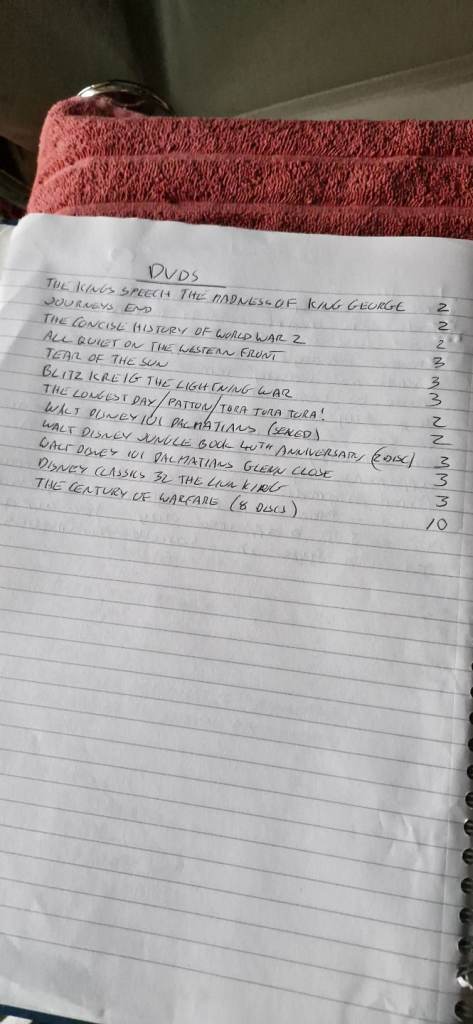 DVDS
THE KINGS SPEECH THE MADNESS OF KING GEORGE 2
JOURNEYS END 2
THE CONCISE HISTORY OF WORLD WAR 2 2
ALL QUIET ON THE WESTERN FRONT 3
TEAR OF THE SUN 3
BLITZ KREIG THE LIGHTNING WAR 3
THE LONGEST DAY/PATTON/TORA TORA TORA! 2
WALT DISNEY 101 DALMATIANS (SEALED) 2
WALT DISNEY JUNGLE BOOK 40TH ANNIVERSARY (2 DISC) 3
WALT DISNEY 101 DALMATIANS GLENN CLOSE 3
DISNEY CLASSICS 32 THE LION KING 3
THE CENTURY OF WARFARE (8 DISCS) 10